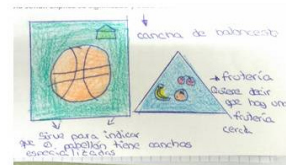 cancha de baloncesto
→ frutería
quiere decir
que hay una
frutería
cerca
Sirve para indicar
que el pabellón tiene canchas
especializadas